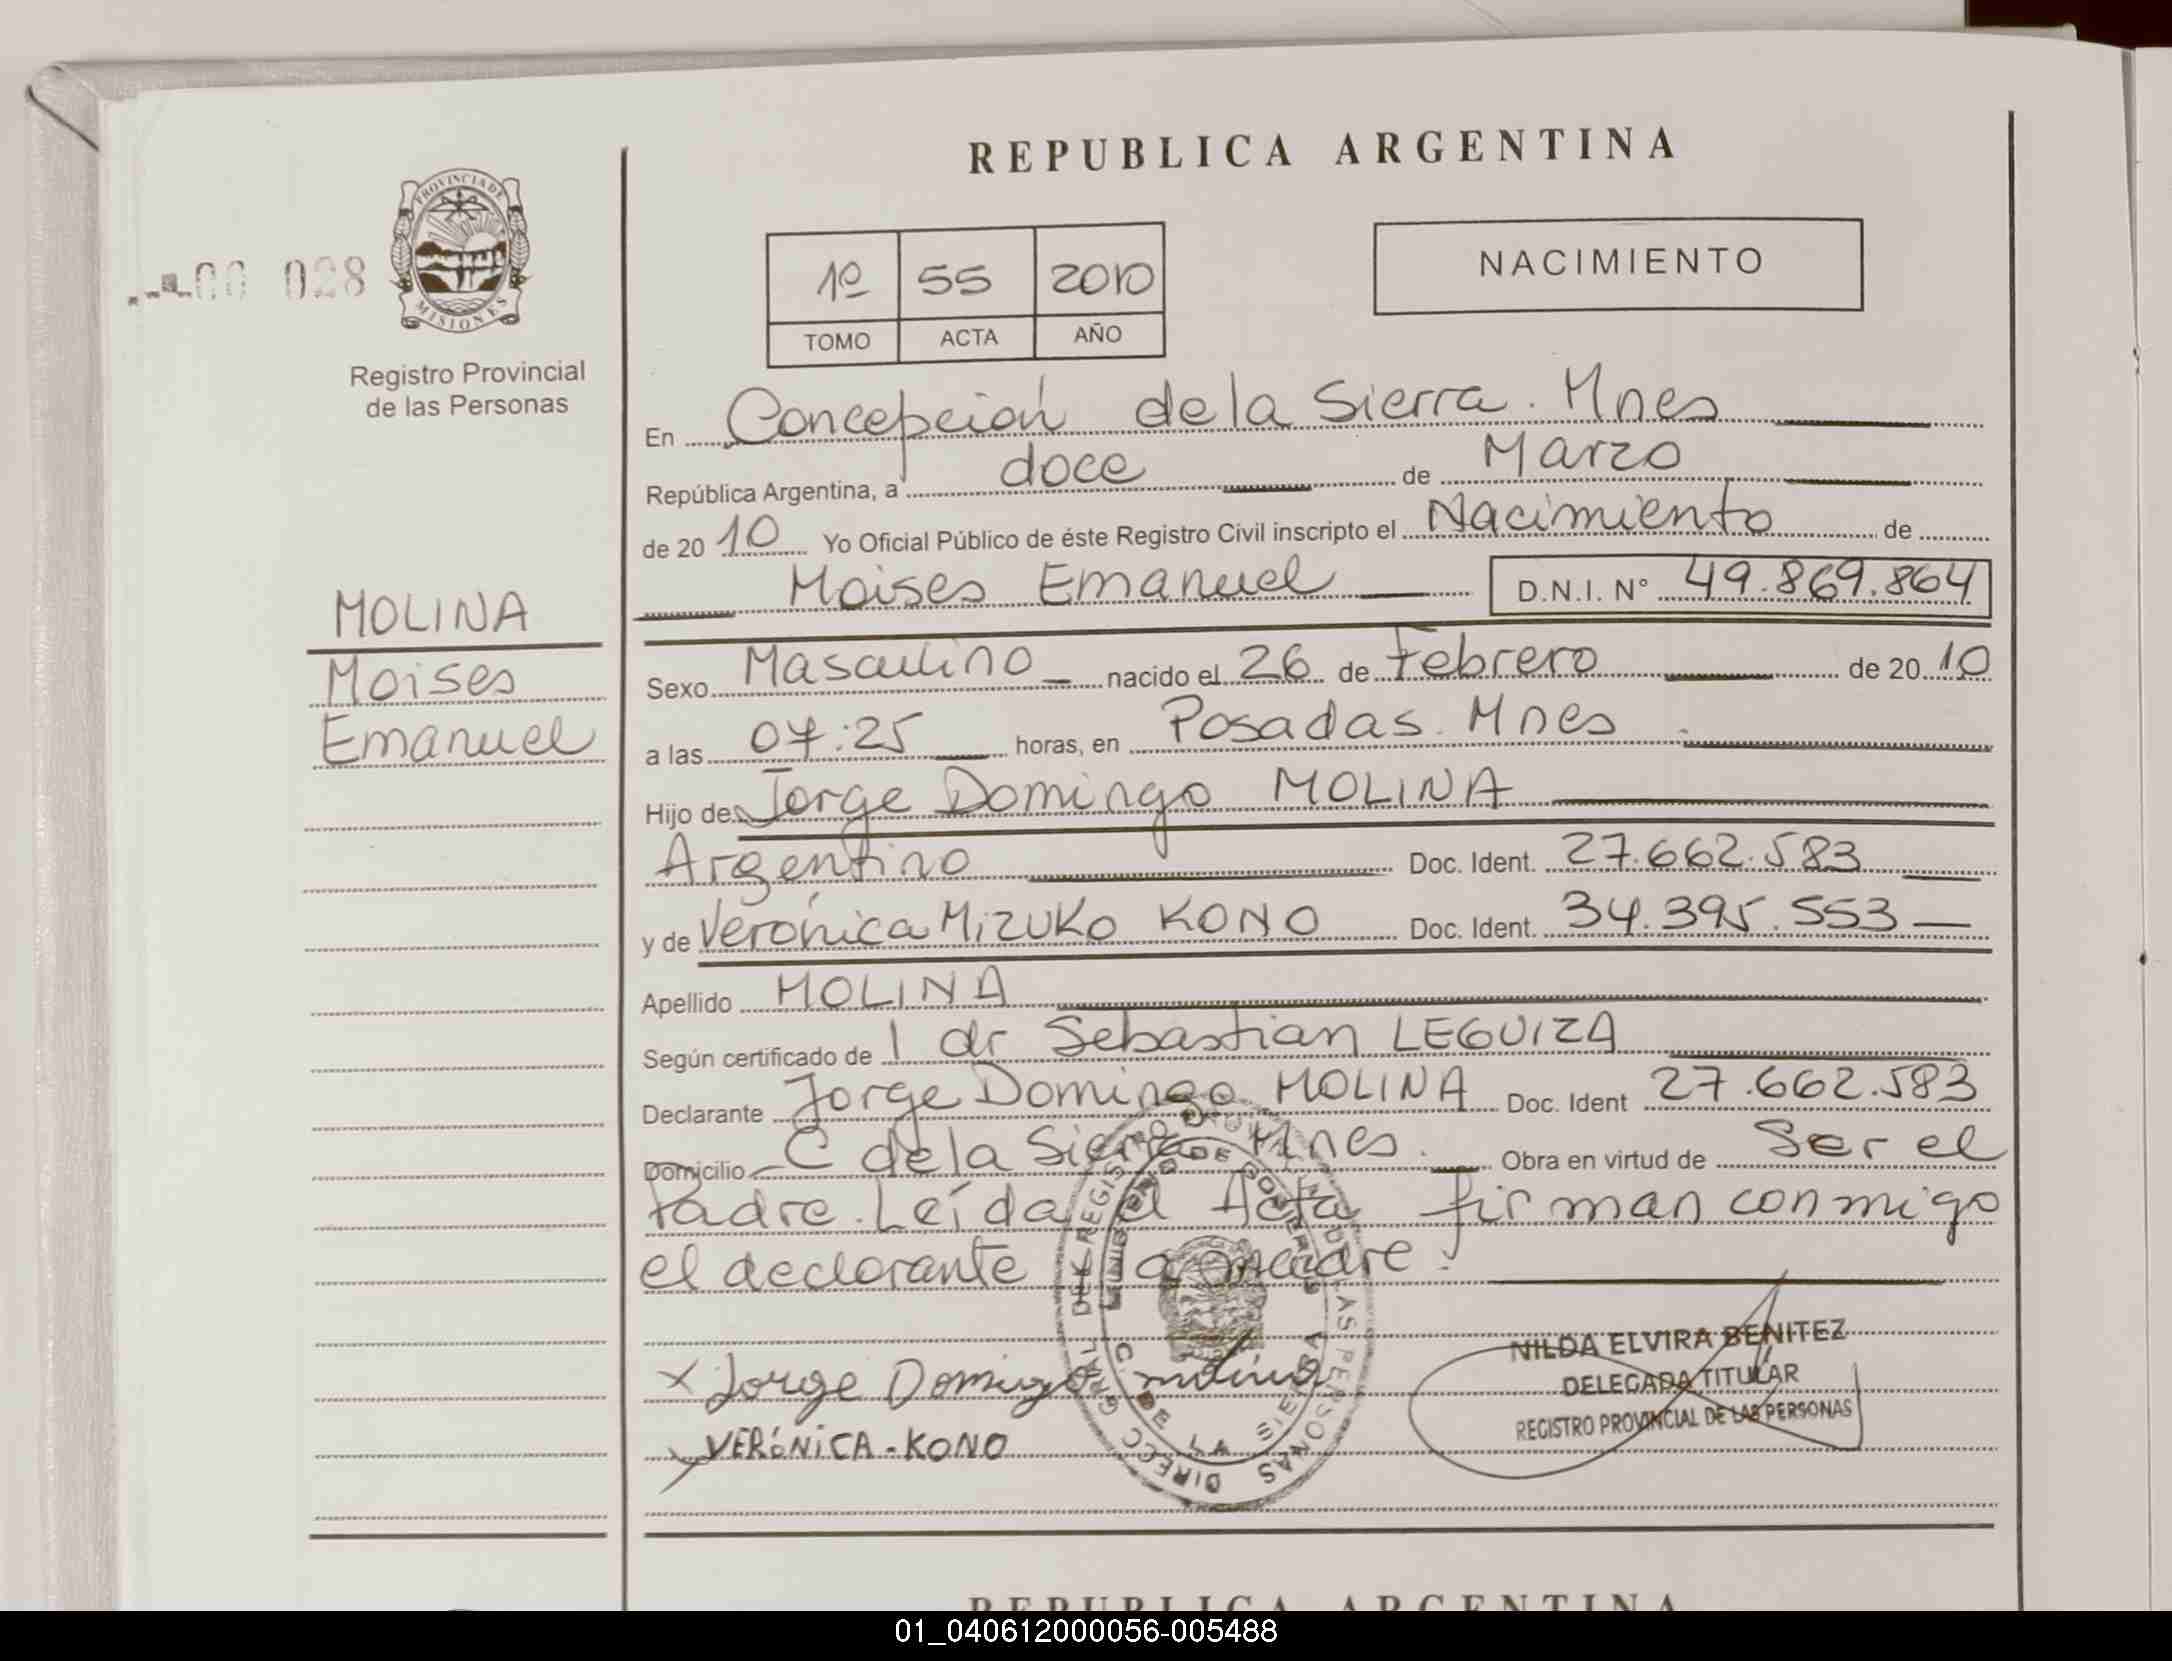 REPUBLICA ARGENTINA
PROVINCIA DE
MISIONES
00 028
Registro Provincial
de las Personas
1º 55 2010
TOMO ACTA AÑO
NACIMIENTO
MOLINA
Moises
Emanuel
En Concepción de la Sierra. Mnes
República Argentina, a doce de Marzo
de 2010 Yo Oficial Público de éste Registro Civil inscripto el Nacimiento de
Moises Emanuel D.N.I. N° 49.869.864
Sexo Masculino nacido el 26 de Febrero de 2010
a las 07:25 horas, en Posadas. Mnes.
Hijo de Jorge Domingo MOLINA
Argentino Doc. Ident. 27.662.583
y de Verónica Mizuko KONO Doc. Ident. 34.395.553
Apellido MOLINA
Según certificado de l dr Sebastian LEGUIZA
Declarante Jorge Domingo MOLINA Doc. Ident 27.662.583
Domicilio C de la Sierra Mnes. Obra en virtud de Ser el
Padre. Leída el Acta firman conmigo
el declarante la madre.
x Jorge Domingo molina
x VERóNiCA-KONO
NILDA ELVIRA BENITEZ
DELEGADA TITULAR
REGISTRO PROVINCIAL DE LAS PERSONAS
DIRECC GRAL DEL REGISTRO LAS PERSONAS
MINISTERIO DE GOBIERNO
C. DE LA SIERRA
REPUBLICA ARGENTINA
01_040612000056-005488